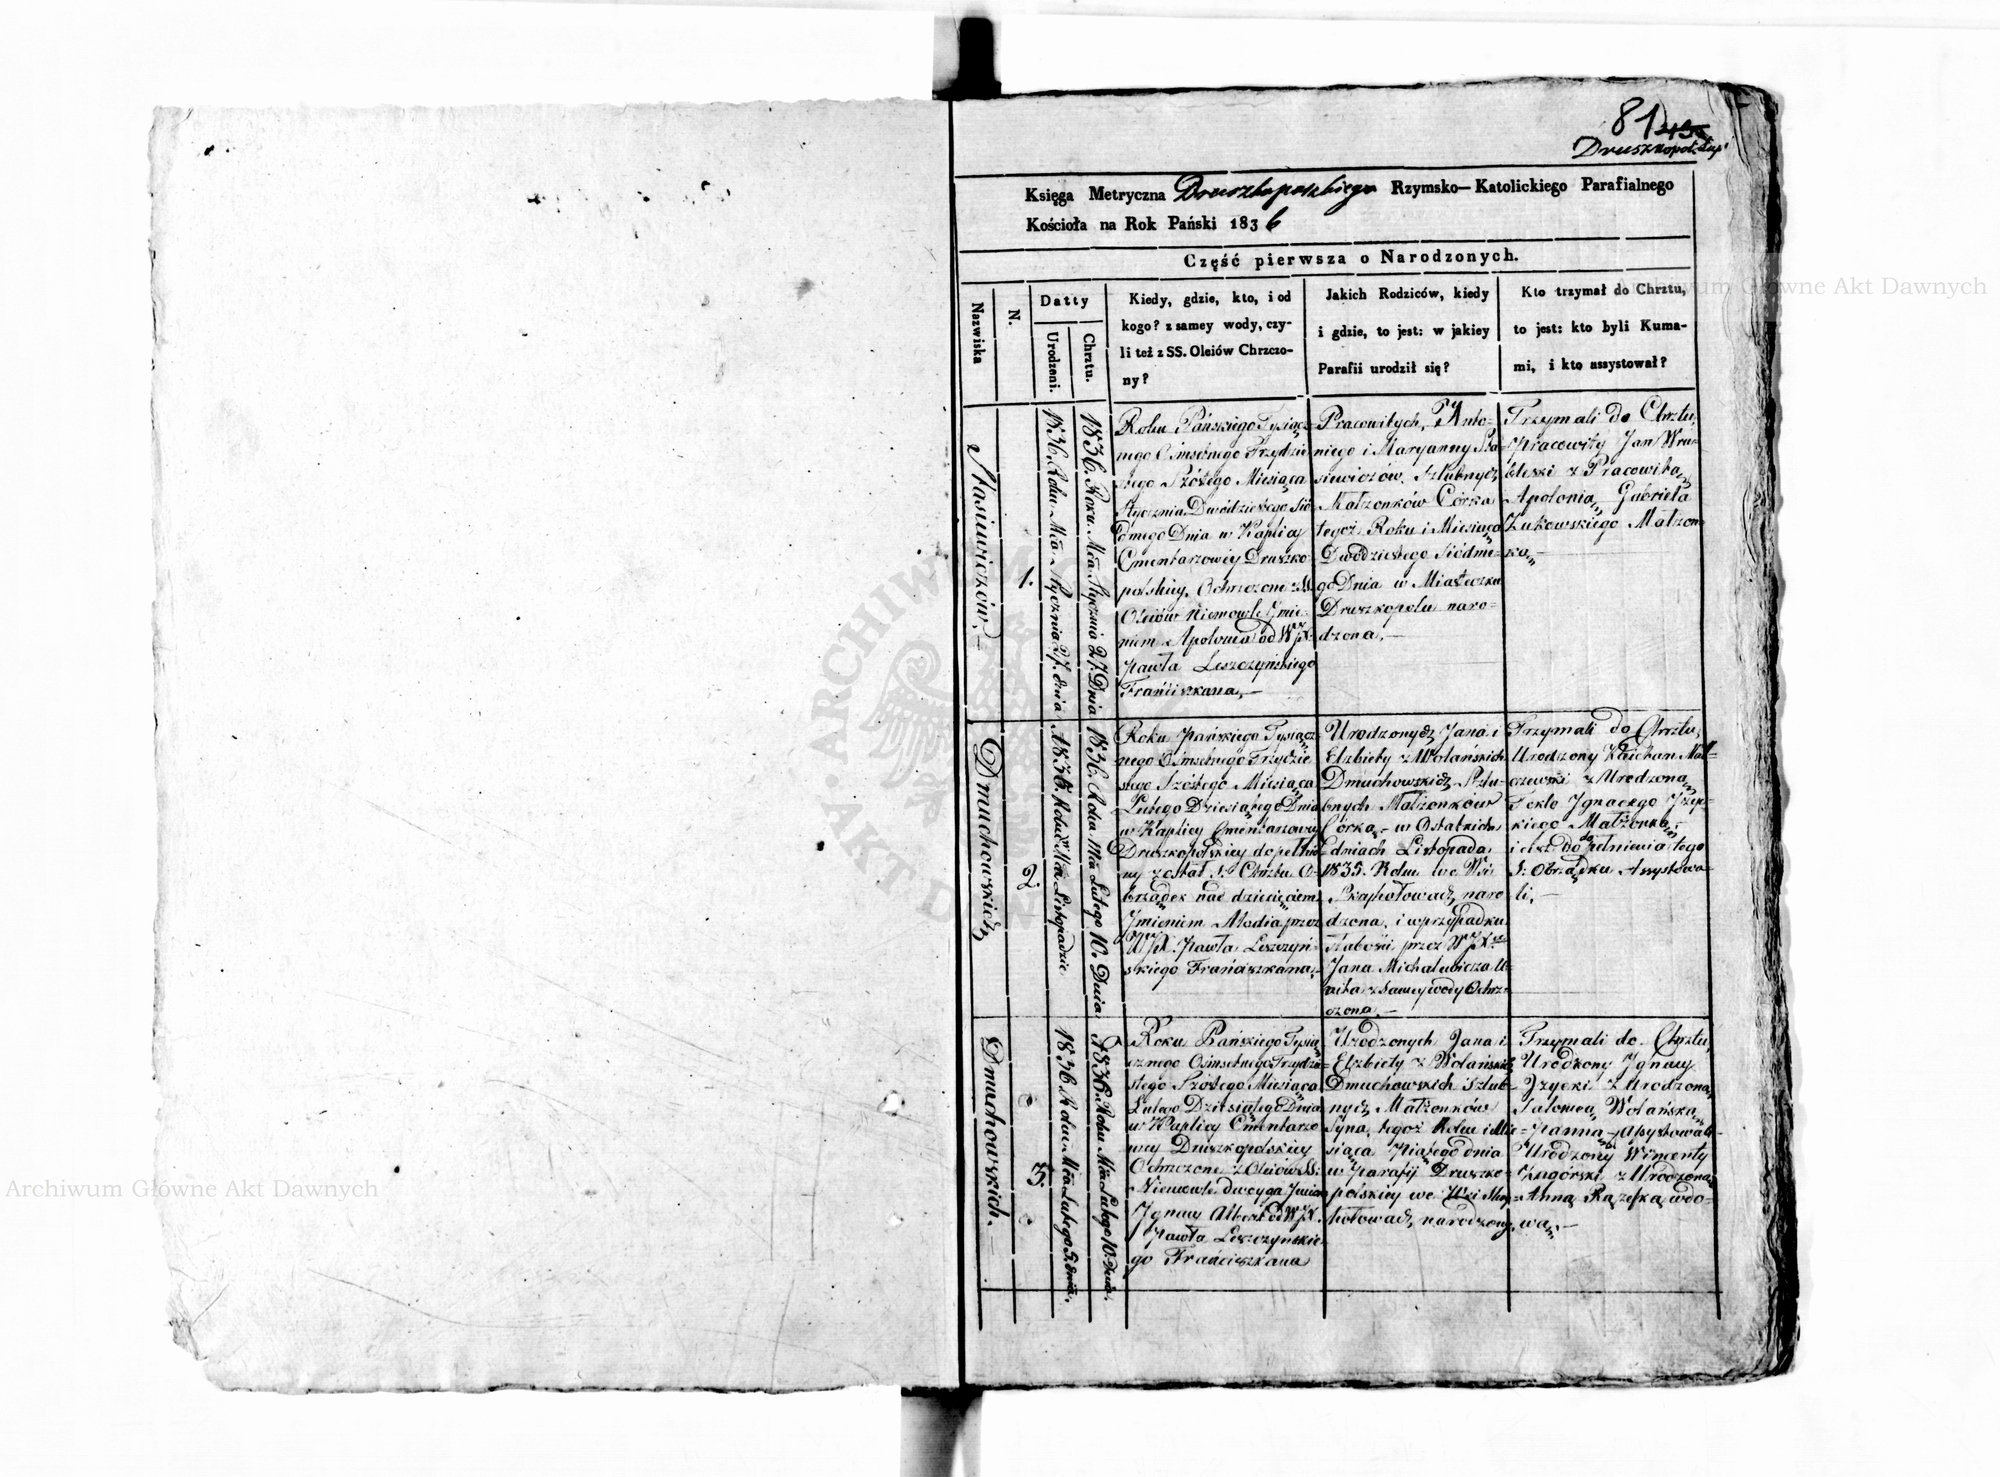 81
Druszkopol. Łap
Księga Metryczna Druszkopolskiego Rzymsko-Katolickiego Parafialnego
Kościoła na Rok Pański 1836
Część pierwsza o Narodzonych.
Nazwiska
N.
Datty
Urodzeni.
Chrztu.
Kiedy, gdzie, kto, i od
kogo? z samey wody, czy-
li też z SS. Oleiów Chrzczo-
ny?
Jakich Rodziców, kiedy
i gdzie, to jest: w jakiey
Parafii urodził się?
Kto trzymał do Chrztu,
to jest: kto byli Kuma-
mi, i kto assystował?
Stasiewiczów.
1.
1836. Roku Mca Stycznia 27. dnia
1836. Roku Mca Stycznia 27. Dnia
Roku Pańskiego Tysiącz-
nego Ośmsetnego Trzydzie
stego Szóstego Miesiąca
Stycznia Dwudziestego Sió
dmego Dnia w Kaplicy
Cmentarzowey Druszko-
polskiey, Ochrzczone z SS.
Oleiów Niemowle Imie-
niem Apolonia od WJX.
Pawła Leszczyńskiego
Franciszkana.
Pracowitych, Anto-
niego i Maryanny Sta
siewiczów, Szlubnych
Małżonków Córka
tegoż Roku i Miesiąca
Dwódziestego Siódme-
go Dnia w Miasteczku
Druszkopolu naro-
dzona.
Trzymali do Chrztu,
Pracowity Jan Wru-
blewski z Pracowitą
Apolonią, Gabriela
Żukowskiego Małżon-
ką.
Dmuchowskich
2.
1835. Roku Mca Listopadzie
1836. Roku Mca Lutego 10. Dnia
Roku Pańskiego Tysiącz-
nego Ośmsetnego Trzydzie
stego Szóstego Miesiąca
Lutego Dziesiątego Dnia
w Kaplicy Cmentarzowey
Druszkopolskiey dopełnio
ny został S. Chrztu O-
brządek nad dziecięciem
Imieniem przez
WJX. Pawła Leszczyń-
skiego Franciszkana.
Urodzonych Jana i
Elzbiety z Wolańskich
Dmuchowskich Szlu-
bnych Małżonków
Córka, w Ostatnich
dniach Listopada
1835. Roku we Wsi
naro-
dzona, i w przypadku
słabości przez WJX.
Jana Michalewicza U-
nita z Samey wody Ochrz-
czona.
Trzymali do Chrztu,
Urodzony
czewski z Urodzoną
Teklą Ignacego
kiego Małżonką,
i też do dopełnienia tego
S. Obrządku Assystowa-
li.
Dmuchowskich.
3.
1836 Roku Mca Lutego 5. dnia.
1836. Roku Mca Lutego 10. Dnia.
Roku Pańskiego Tysią
cznego Ośmsetnego Trzydzie
stego Szóstego Miesiąca
Lutego Dziesiątego Dnia
w Kaplicy Cmentarzo
wey Druszkopolskiey
Ochrzczone z Oleiów SS:
Niemowle dwoyga Imion
Ignacy Albert od WJX.
Pawła Leszczyńskie-
go Franciszkana
Urodzonych Jana i
Elzbiety z Wolańskich
Dmuchowskich Szlub-
nych Małżonków
Syna, tegoż Roku i Mie-
siąca Piątego dnia
w Parafij Druszko-
polskiey we Wsi
narodzony.
Trzymali do Chrztu,
Urodzony Ignacy
z Urodzoną
Salomeą Wolańską
Panną, Assystowali
Urodzony Wincenty
Zagórski z Urodzoną
Anną wdo-
wą.
Archiwum Główne Akt Dawnych
Archiwum Główne Akt Dawnych